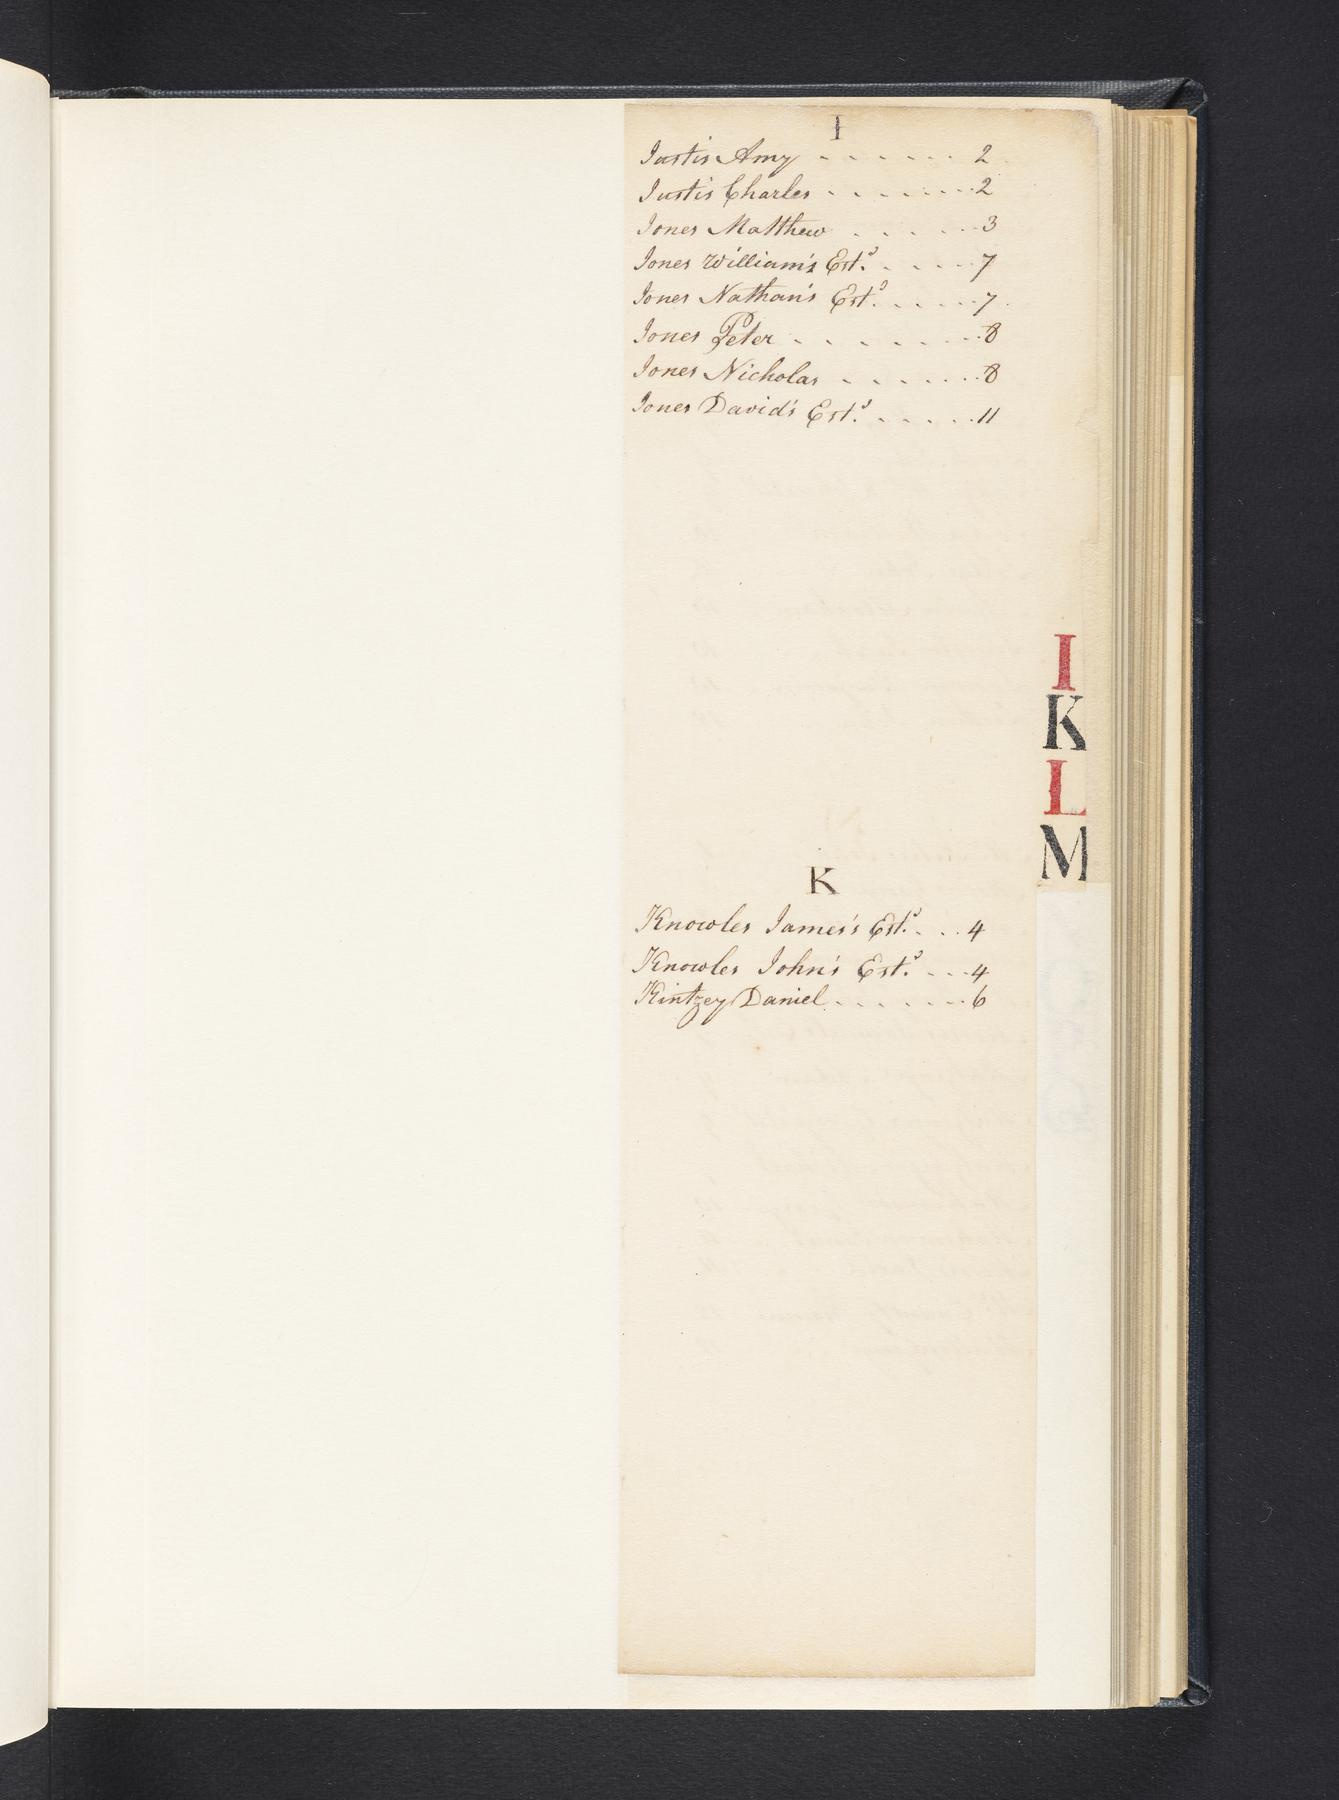 I
Justis Amy - - - - - - - 2
Justis Charles - - - - - - - - 2
Jones Matthew - - - - - - 3
Jones William's Est.s - - - - - 7
Jones Nathan's Est.s - - - - - - 7
Jones Peter - - - - - - - - - 8
Jones Nicholas - - - - - - - 8
Jones David's Est.s - - - - - - 11
I
K
L
M
K
Knowles James's Est.s - - - 4
Knowles John's Est.s - - - 4
Kintzey Daniel - - - - - - - 6